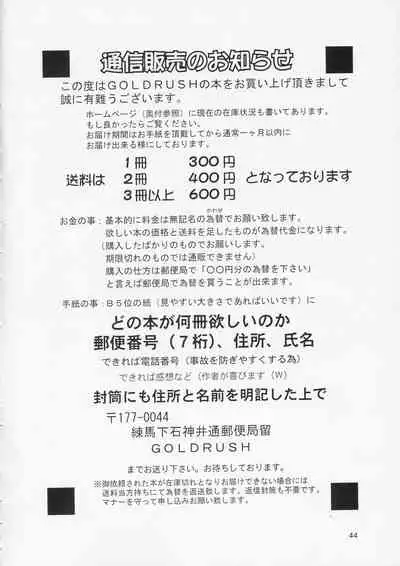 通信販売のお知らせ
この度はGOLDRUSHの本をお買い上げ頂きまして
誠に有難うございます。
ホームページ（奥付参照）に現在の在庫状況も書いてあります。
もし良かったらご覧ください。
お届け期間はお手紙を頂戴してから通常一ヶ月以内に
お届け出来る様にしております。
1冊 300円
送料は 2冊 400円 となっております
3冊以上 600円
お金の事：基本的に料金は無記名の為替でお願い致します。
かわせ
欲しい本の価格と送料を足したものが為替代金になります。
（購入したばかりのものでお願いします。
期限切れのものでは通販できません）
購入の仕方は郵便局で「〇〇円分の為替を下さい」
と言えば郵便局で為替を買うことが出来ます。
手紙の事：B5位の紙（見やすい大きさであればいいです）に
どの本が何冊欲しいのか
郵便番号（7桁）、住所、氏名
できれば電話番号（事故を防ぎやすくする為）
できれば感想など（作者が喜びます（W）
封筒にも住所と名前を明記した上で
〒177-0044
練馬下石神井通郵便局留
GOLDRUSH
までお送り下さい。お待ちしております。
※御依頼された本が在庫切れとなりお届けできない場合には
送料当方持ちにて為替を返送致します。返信封筒も不要です。
マナーを守って申し込みお願い致します。
44